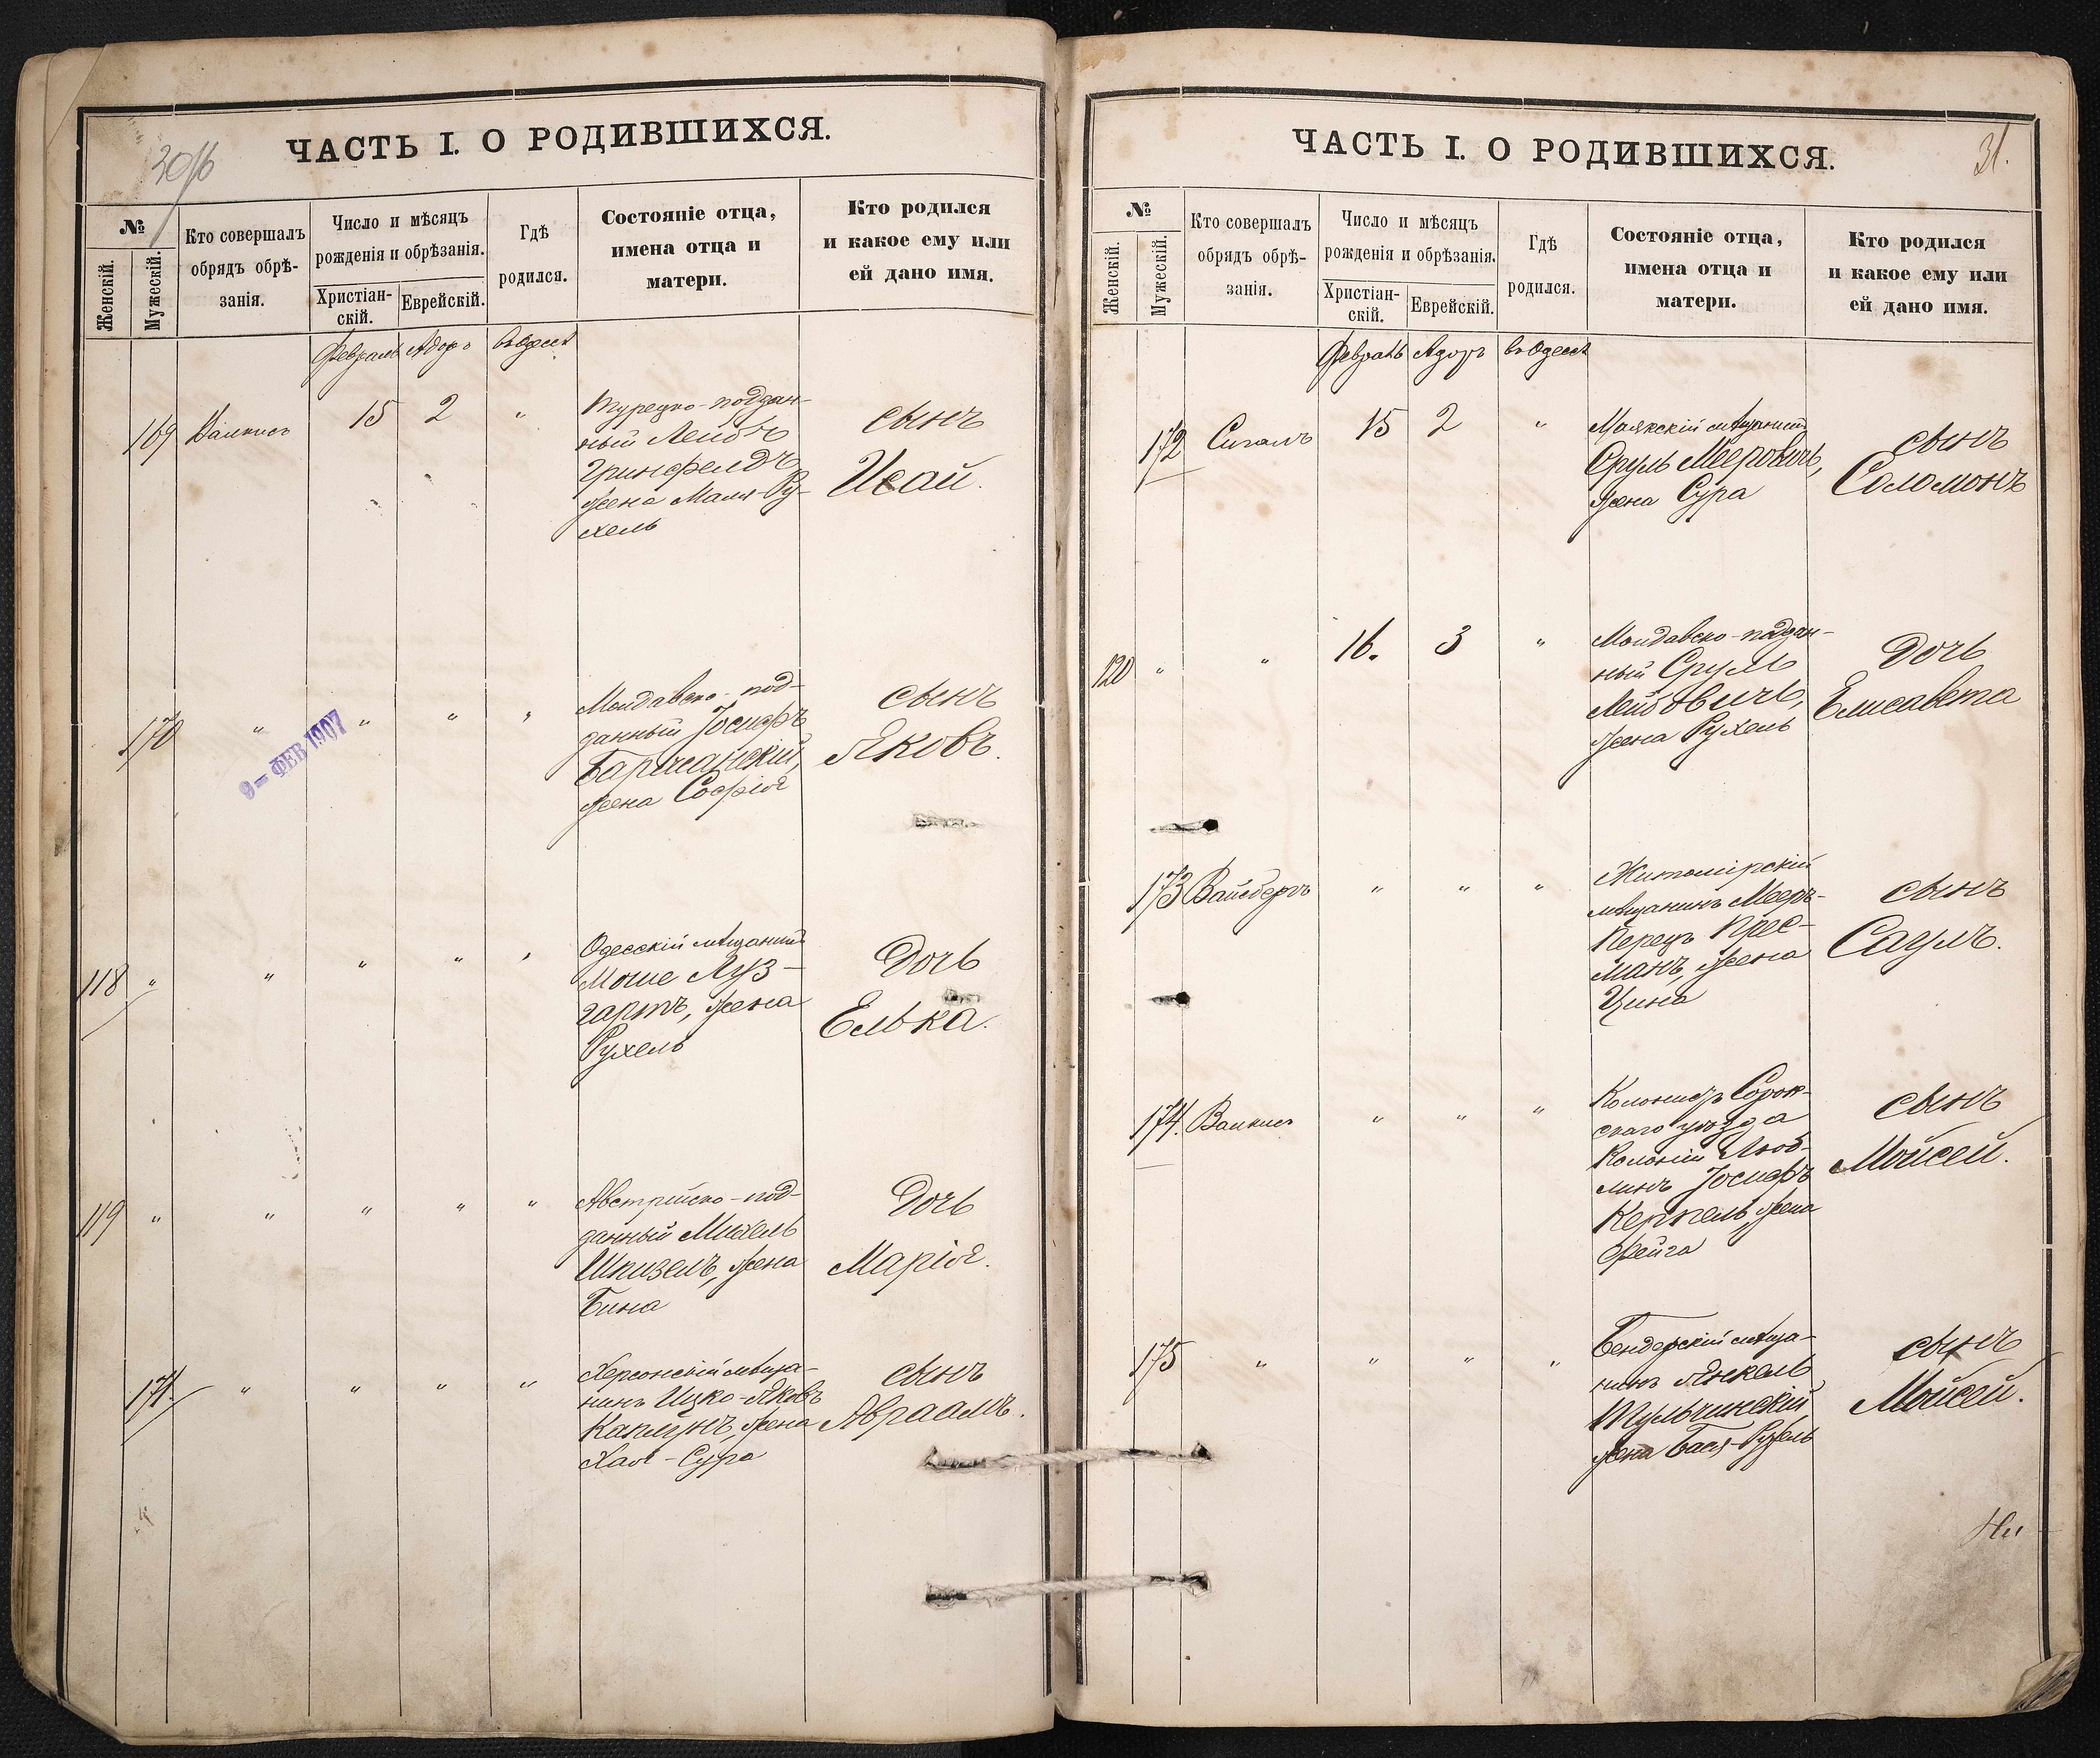 30/б
ЧАСТЬ I. О РОДИВШИХСЯ.
№
Женскій.
Мужескій.
Кто совершалъ
обрядъ обрѣ-
занія.
Число и мѣсяцъ
рожденія и обрѣзанія.
Христіан-
скій.
Еврейскій.
Гдѣ
родился.
Состояніе отца,
имена отца и
матери.
Кто родился
и какое ему или
ей дано имя.
Февраль Адоръ въ Одессѣ
169 Валкисъ 15 2 "
Турецко-поддан-
ный Лейбъ
Гринфельдъ,
жена Маля-Ру-
хель
сынъ
Исай.
170 " " " "
Молдавско-под-
данный Іосифъ
Баршанскій,
жена Софія
сынъ
Яковъ.
9 - ФЕВ 1907
118 " " " " "
Одесскій мѣщанинъ
Моше Луз-
гартъ, жена
Рухель
Дочь
Елька.
119 " " " " "
Австрійско-под-
данный Михель
Шпизель, жена
Бина
Дочь
Марія.
171. " " " "
Херсонскій мѣща-
нинъ Ицко-Яковъ
Каплунъ, жена
Хая-Сура
сынъ
Авраамъ.
31.
ЧАСТЬ I. О РОДИВШИХСЯ.
№
Женскій.
Мужескій.
Кто совершалъ
обрядъ обрѣ-
занія.
Число и мѣсяцъ
рожденія и обрѣзанія.
Христіан-
скій.
Еврейскій.
Гдѣ
родился.
Состояніе отца,
имена отца и
матери.
Кто родился
и какое ему или
ей дано имя.
Февраль Адоръ въ Одессѣ
172 Сигалъ 15 2 "
Маякскій мѣщанинъ
Сруль Мееровичъ,
жена Сура
сынъ
Соломонъ
120 " " 16. 3 "
Молдавско-поддан-
ный Сруль
Лейбовичъ,
жена Рухель
Дочь
Елисавета
173 Вайсбергъ " " "
Житомірскій
мѣщанинъ Мееръ-
Перецъ Крес-
манъ, жена
Цина
сынъ
Саулъ.
174. Валкисъ " " "
Колонистъ Сорок-
скаго уѣзда
Колоніи Люб-
линъ Іосифъ
Керпель, жена
Фейга
сынъ
Мойсей.
175 " " " "
Бендерскій мѣща-
нинъ Янкель
Тульчинскій
жена Бася-Рухель
сынъ
Мойсей.